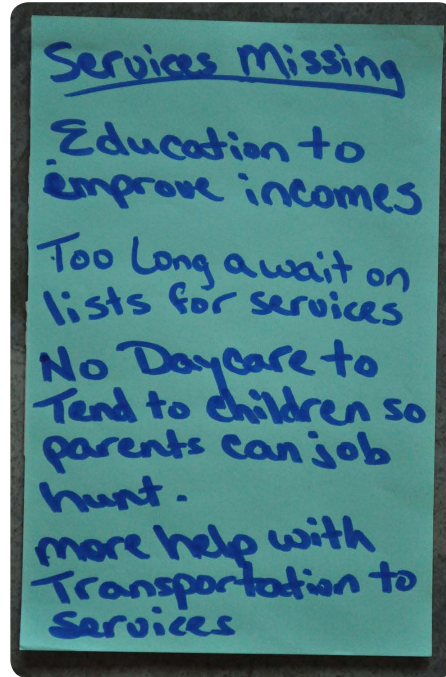 Services Missing
Education to
improve incomes
Too Long a wait on
lists for services
No Daycare to
Tend to children so
parents can job
hunt.
more help with
Transportation to
Services